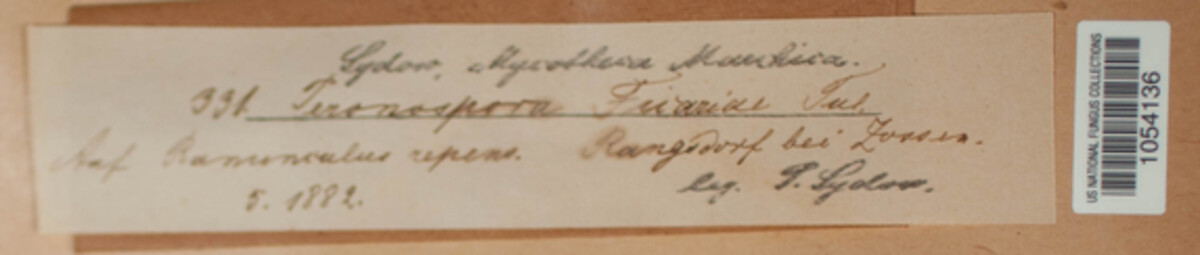 Sydow, Mycotheca Marchica.
331. Peronospora Ficariae Tul.
Auf Ranunculus repens. Rangsdorf bei Zossen.
5. 1882. leg. P. Sydow.
US NATIONAL FUNGUS COLLECTIONS
1054136